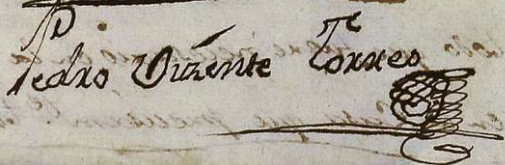 Pedro Vizente Torres